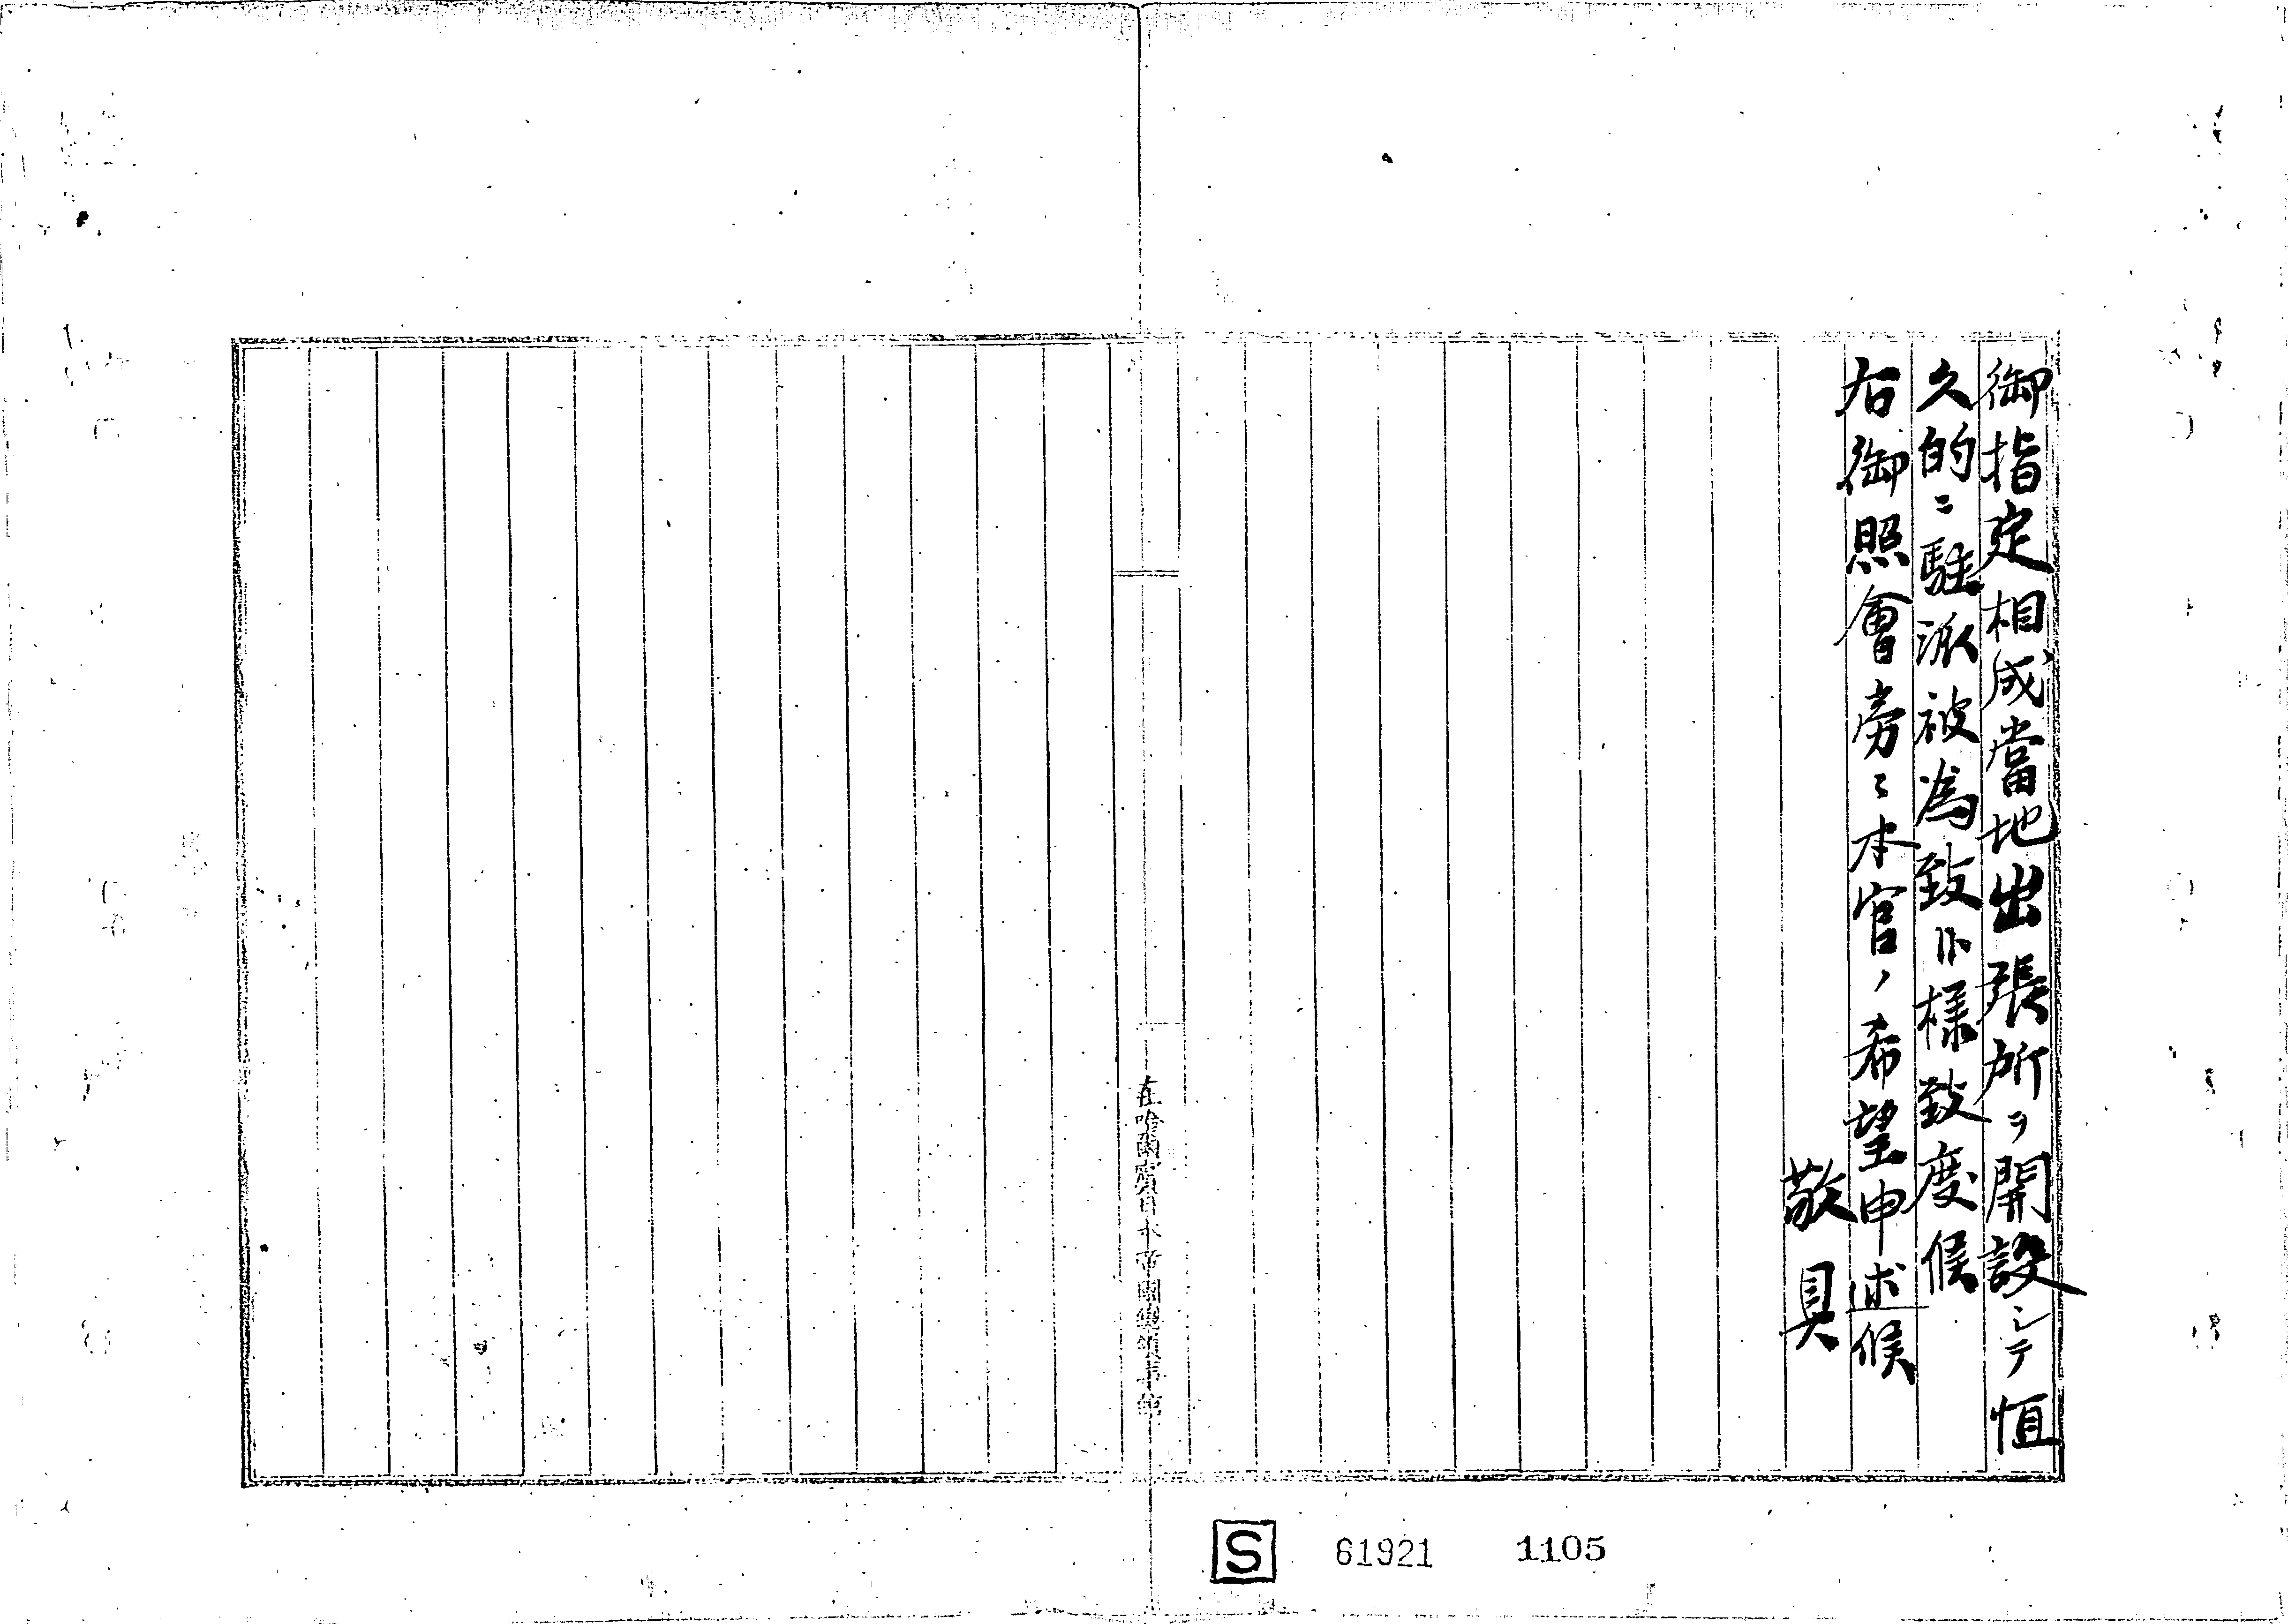 御指定相成當地出張所ヲ開設シテ恒
久的ニ駐派被為致候様致度候
右御照會旁々本官ノ希望申述候
敬具
在哈爾賓日本帝國總領事館
S 61921 1105